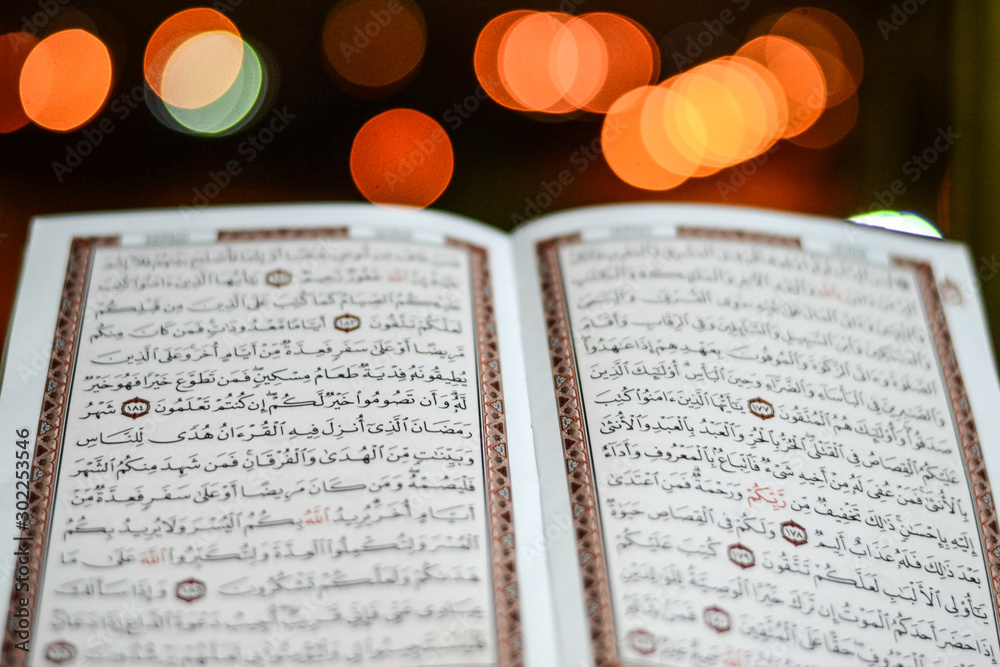 وَٱلنَّبِيِّـۧنَ وَءَاتَى ٱلْمَالَ عَلَىٰ حُبِّهِۦ ذَوِى ٱلْقُرْبَىٰ وَٱلْيَتَٰمَىٰ
وَٱلْمَسَٰكِينَ وَٱبْنَ ٱلسَّبِيلِ وَٱلسَّآئِلِينَ وَفِى ٱلرِّقَابِ وَأَقَامَ
ٱلصَّلَوٰةَ وَءَاتَى ٱلزَّكَوٰةَ وَٱلْمُوفُونَ بِعَهْدِهِمْ إِذَا عَٰهَدُوا۟
وَٱلصَّٰبِرِينَ فِى ٱلْبَأْسَآءِ وَٱلضَّرَّآءِ وَحِينَ ٱلْبَأْسِ أُو۟لَٰٓئِكَ ٱلَّذِينَ
صَدَقُوا۟ وَأُو۟لَٰٓئِكَ هُمُ ٱلْمُتَّقُونَ ١٧٧ يَٰٓأَيُّهَا ٱلَّذِينَ ءَامَنُوا۟ كُتِبَ
عَلَيْكُمُ ٱلْقِصَاصُ فِى ٱلْقَتْلَى ٱلْحُرُّ بِٱلْحُرِّ وَٱلْعَبْدُ بِٱلْعَبْدِ وَٱلْأُنثَىٰ
بِٱلْأُنثَىٰ فَمَنْ عُفِىَ لَهُۥ مِنْ أَخِيهِ شَىْءٌ فَٱتِّبَاعٌۢ بِٱلْمَعْرُوفِ وَأَدَآءٌ
إِلَيْهِ بِإِحْسَٰنٍ ذَٰلِكَ تَخْفِيفٌ مِّن رَّبِّكُمْ وَرَحْمَةٌ فَمَنِ ٱعْتَدَىٰ
بَعْدَ ذَٰلِكَ فَلَهُۥ عَذَابٌ أَلِيمٌ ١٧٨ وَلَكُمْ فِى ٱلْقِصَاصِ حَيَوٰةٌ
يَٰٓأُو۟لِى ٱلْأَلْبَٰبِ لَعَلَّكُمْ تَتَّقُونَ ١٧٩ كُتِبَ عَلَيْكُمْ
إِذَا حَضَرَ أَحَدَكُمُ ٱلْمَوْتُ إِن تَرَكَ خَيْرًا ٱلْوَصِيَّةُ لِلْوَٰلِدَيْنِ
حَقًّا عَلَى ٱلْمُتَّقِينَ ١٨٠
ٱللَّهَ غَفُورٌ رَّحِيمٌ ١٨٢ يَٰٓأَيُّهَا ٱلَّذِينَ ءَامَنُوا۟ كُتِبَ
عَلَيْكُمُ ٱلصِّيَامُ كَمَا كُتِبَ عَلَى ٱلَّذِينَ مِن قَبْلِكُمْ
لَعَلَّكُمْ تَتَّقُونَ ١٨٣ أَيَّامًا مَّعْدُودَٰتٍ فَمَن كَانَ مِنكُم
مَّرِيضًا أَوْ عَلَىٰ سَفَرٍ فَعِدَّةٌ مِّنْ أَيَّامٍ أُخَرَ وَعَلَى ٱلَّذِينَ
يُطِيقُونَهُۥ فِدْيَةٌ طَعَامُ مِسْكِينٍ فَمَن تَطَوَّعَ خَيْرًا فَهُوَ خَيْرٌ
لَّهُۥ وَأَن تَصُومُوا۟ خَيْرٌ لَّكُمْ إِن كُنتُمْ تَعْلَمُونَ ١٨٤ شَهْرُ
رَمَضَانَ ٱلَّذِىٓ أُنزِلَ فِيهِ ٱلْقُرْءَانُ هُدًى لِّلنَّاسِ
وَبَيِّنَٰتٍ مِّنَ ٱلْهُدَىٰ وَٱلْفُرْقَانِ فَمَن شَهِدَ مِنكُمُ ٱلشَّهْرَ
فَلْيَصُمْهُ وَمَن كَانَ مَرِيضًا أَوْ عَلَىٰ سَفَرٍ فَعِدَّةٌ مِّنْ
أَيَّامٍ أُخَرَ يُرِيدُ ٱللَّهُ بِكُمُ ٱلْيُسْرَ وَلَا يُرِيدُ بِكُمُ
ٱلْعُسْرَ وَلِتُكْمِلُوا۟ ٱلْعِدَّةَ وَلِتُكَبِّرُوا۟ ٱللَّهَ عَلَىٰ مَا
هَدَىٰكُمْ وَلَعَلَّكُمْ تَشْكُرُونَ ١٨٥ وَإِذَا سَأَلَكَ
عِبَادِى عَنِّى فَإِنِّى قَرِيبٌ أُجِيبُ دَعْوَةَ ٱلدَّاعِ إِذَا دَعَانِ
Adobe Stock | #302253546